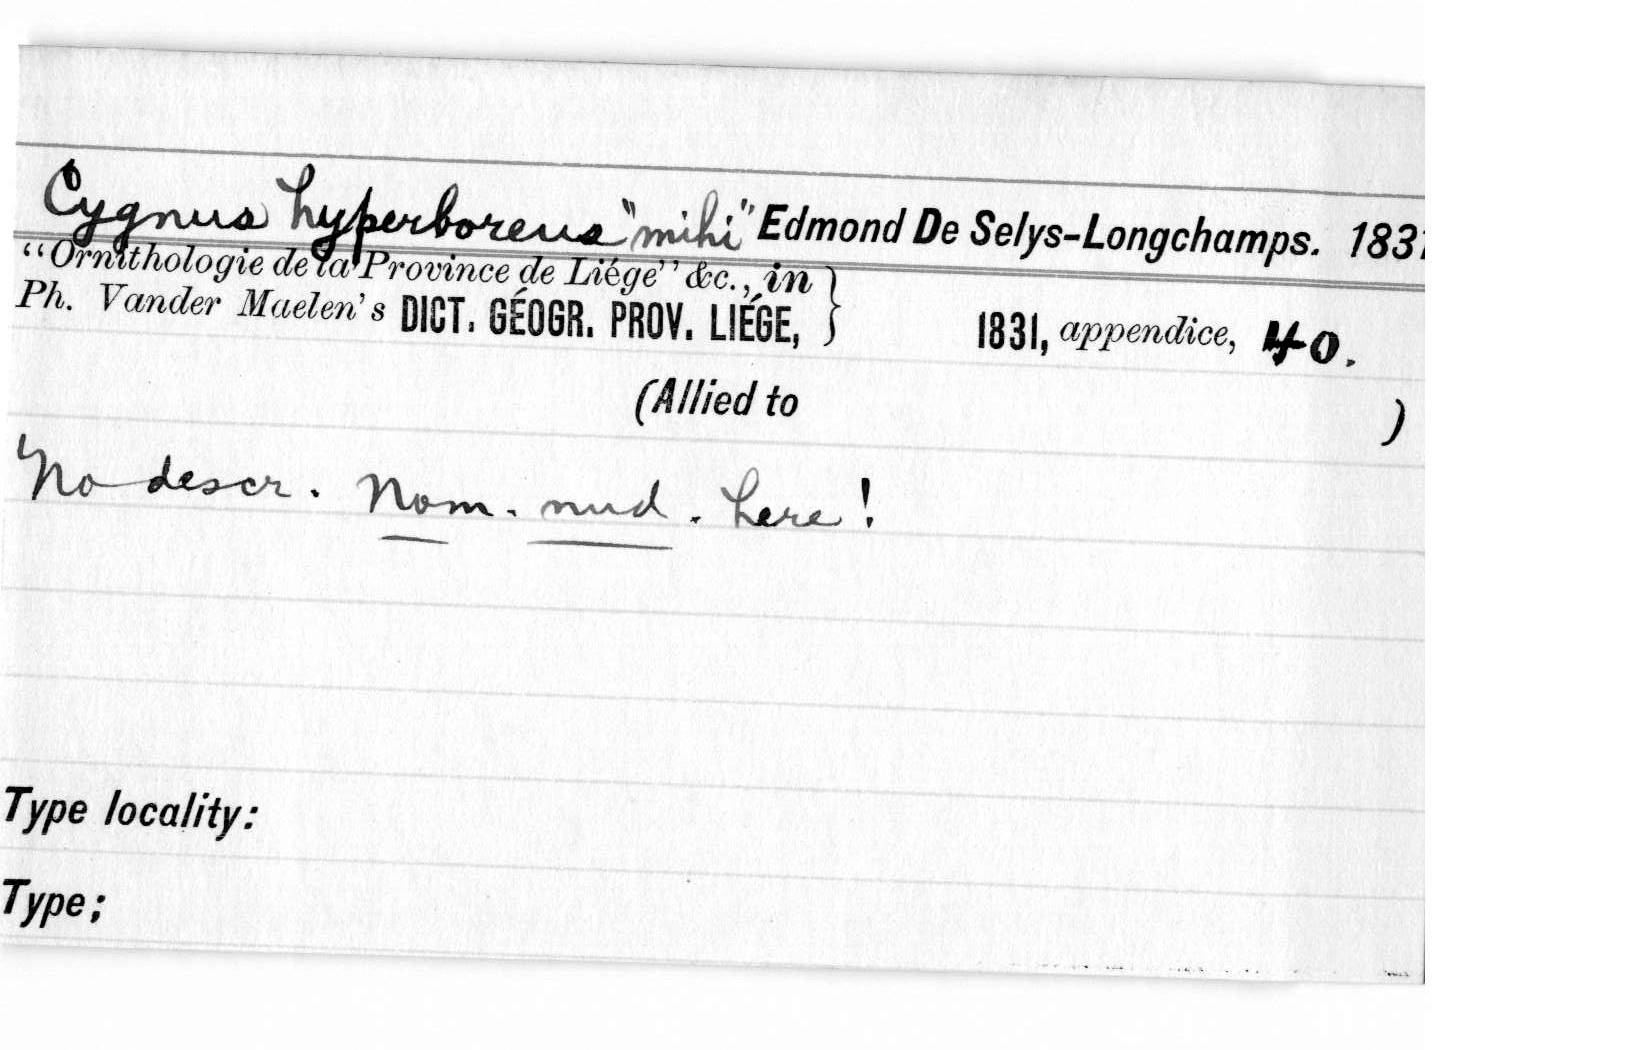 Cygnus hyperboreus "mihi" Edmond De Selys-Longchamps. 1831
"Ornithologie de la Province de Liége" &c., in }
Ph. Vander Maelen's DICT. GÉOGR. PROV. LIÉGE, } 1831, appendice, 40.
(Allied to )
No descr. Nom. nud. here!
Type locality:
Type;